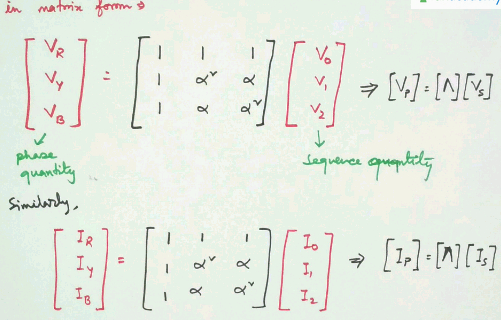 in matrix form →
[V_R V_Y V_B] = [1 1 1; 1 α² α; 1 α α²] [V_0 V_1 V_2] ⇒ [V_P] = [Λ][V_S]
phase quantity
sequence quantity
Similarly,
[I_R I_Y I_B] = [1 1 1; 1 α² α; 1 α α²] [I_0 I_1 I_2] ⇒ [I_P] = [Λ][I_S]